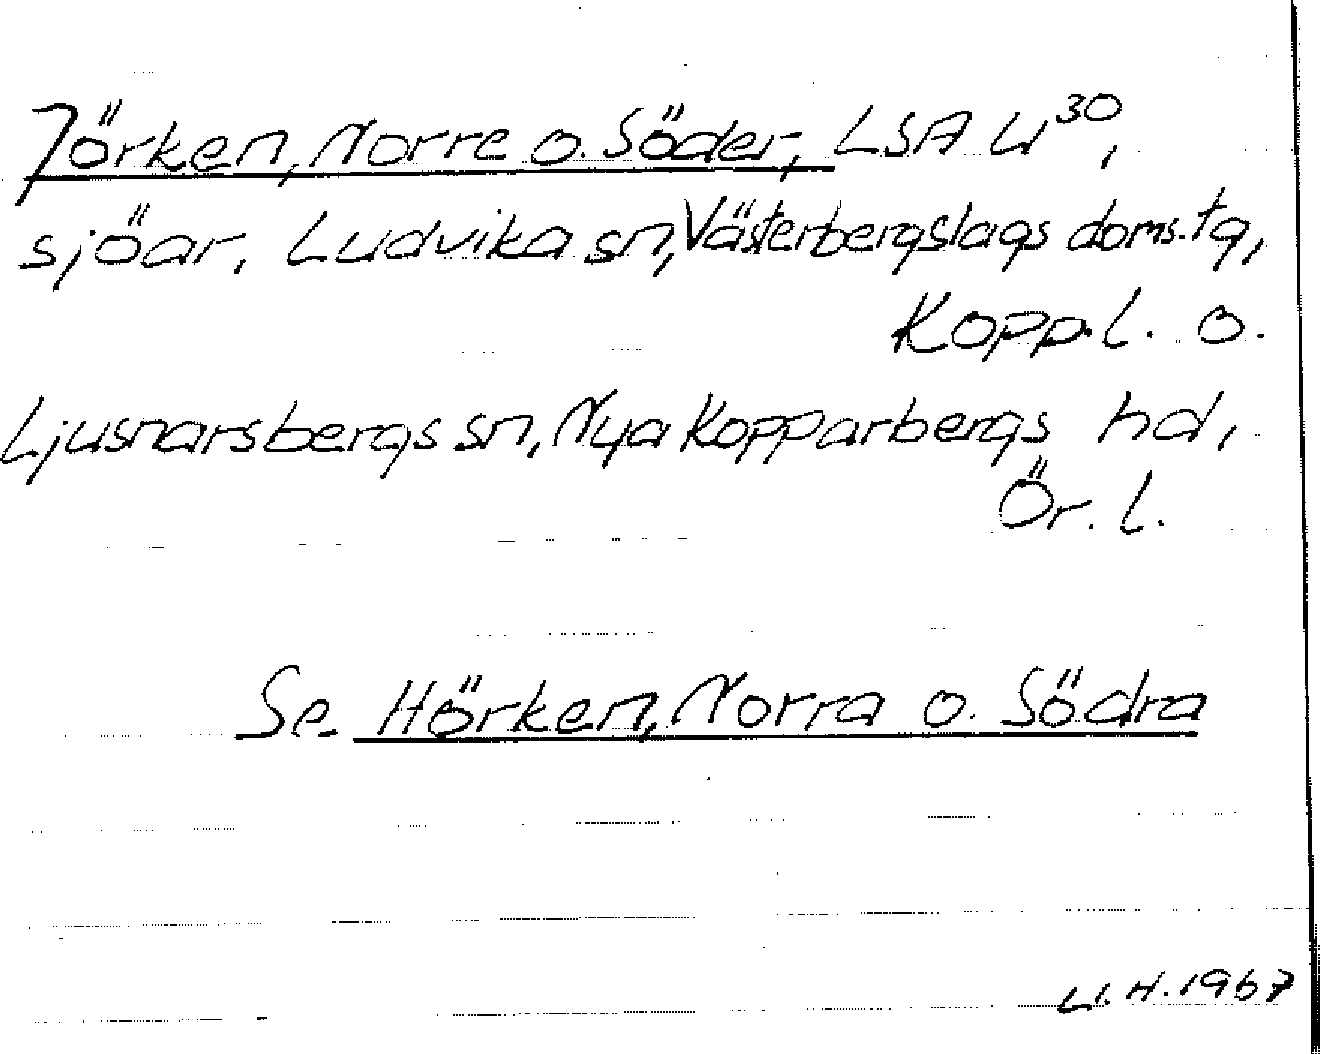 Jörken, Norre o. Söder-, LSA U³⁰,
sjöar, Ludvika sn, Västerbergslags doms.tg,
Kopp.l. o.
Ljusnarsbergs sn, Nya Kopparbergs hd,
Ör. l.
Se Hörken, Norra o. Södra
U.H.1967